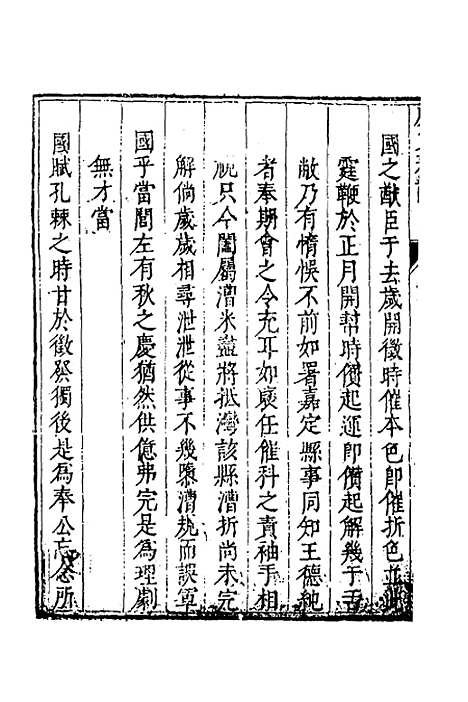 國之猷臣于去歲開徵時催本色即催折色並
霆鞭於正月開幫時價起運即價起解幾于舌
敝乃有惰悞不前如署嘉定縣事同知王德純
者奉期會之令充耳如褎任催科之責袖手相
視只今闔屬漕米盡將抵灣該縣漕折尚未完
解倘歲歲相尋泄泄從事不幾隳漕規而誤軍
國乎當閭左有秋之慶猶然供億弗完是為理劇
無才當
國賦孔棘之時甘於徵發獨後是為奉公忘念所